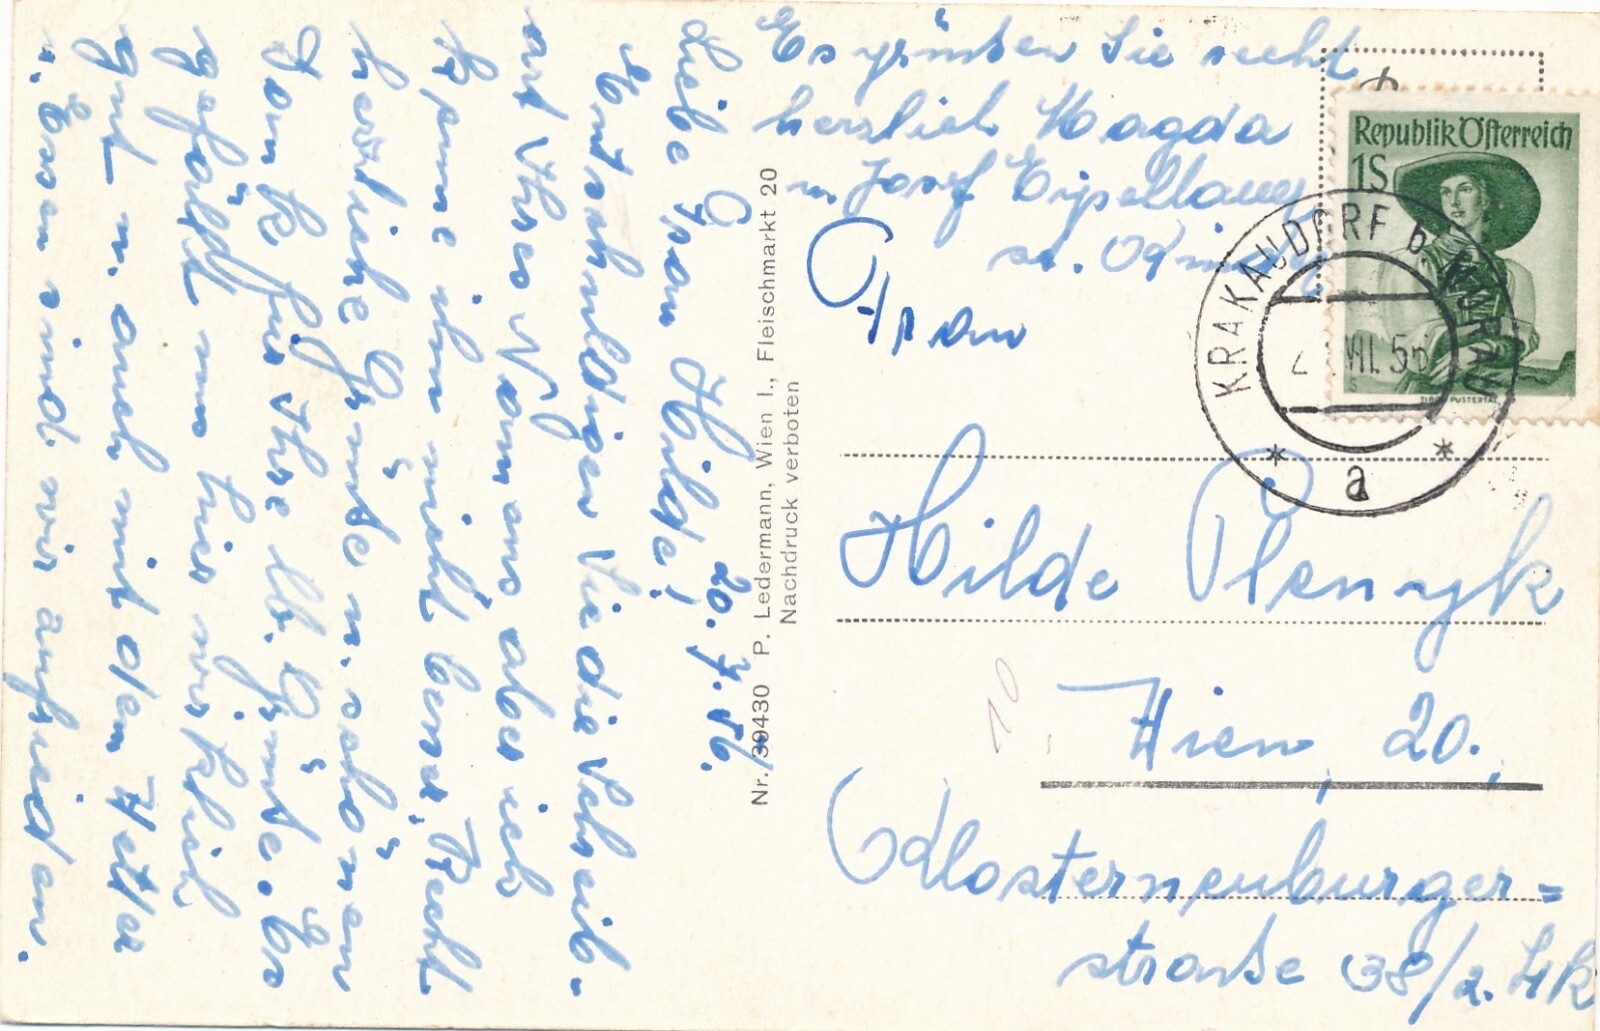 20. 7. 56.
Liebe Frau Hilde!
Entschuldigen Sie die Schreib-
art Ihres Namens aber ich
kenne ihn nicht besser. Recht
herzliche Grüße u. schönen
Dank für Ihre lb. Grüße. Es
gefällt uns hier wirklich
gut u. auch mit dem Wetter
u. Essen sind wir zufrieden.
Es grüßen Sie recht
herzlich Magda
u. Josef
Nr. 39430 P. Ledermann, Wien I., Fleischmarkt 20
Nachdruck verboten
Republik Österreich
1S
TIROL PUSTERTAL
KRAKAUDORF b. MURAU
VII. 56
a
Frau
Hilde Plenyk
Wien, 20.,
Klosterneuburger-
straße 38/2. Stk
10